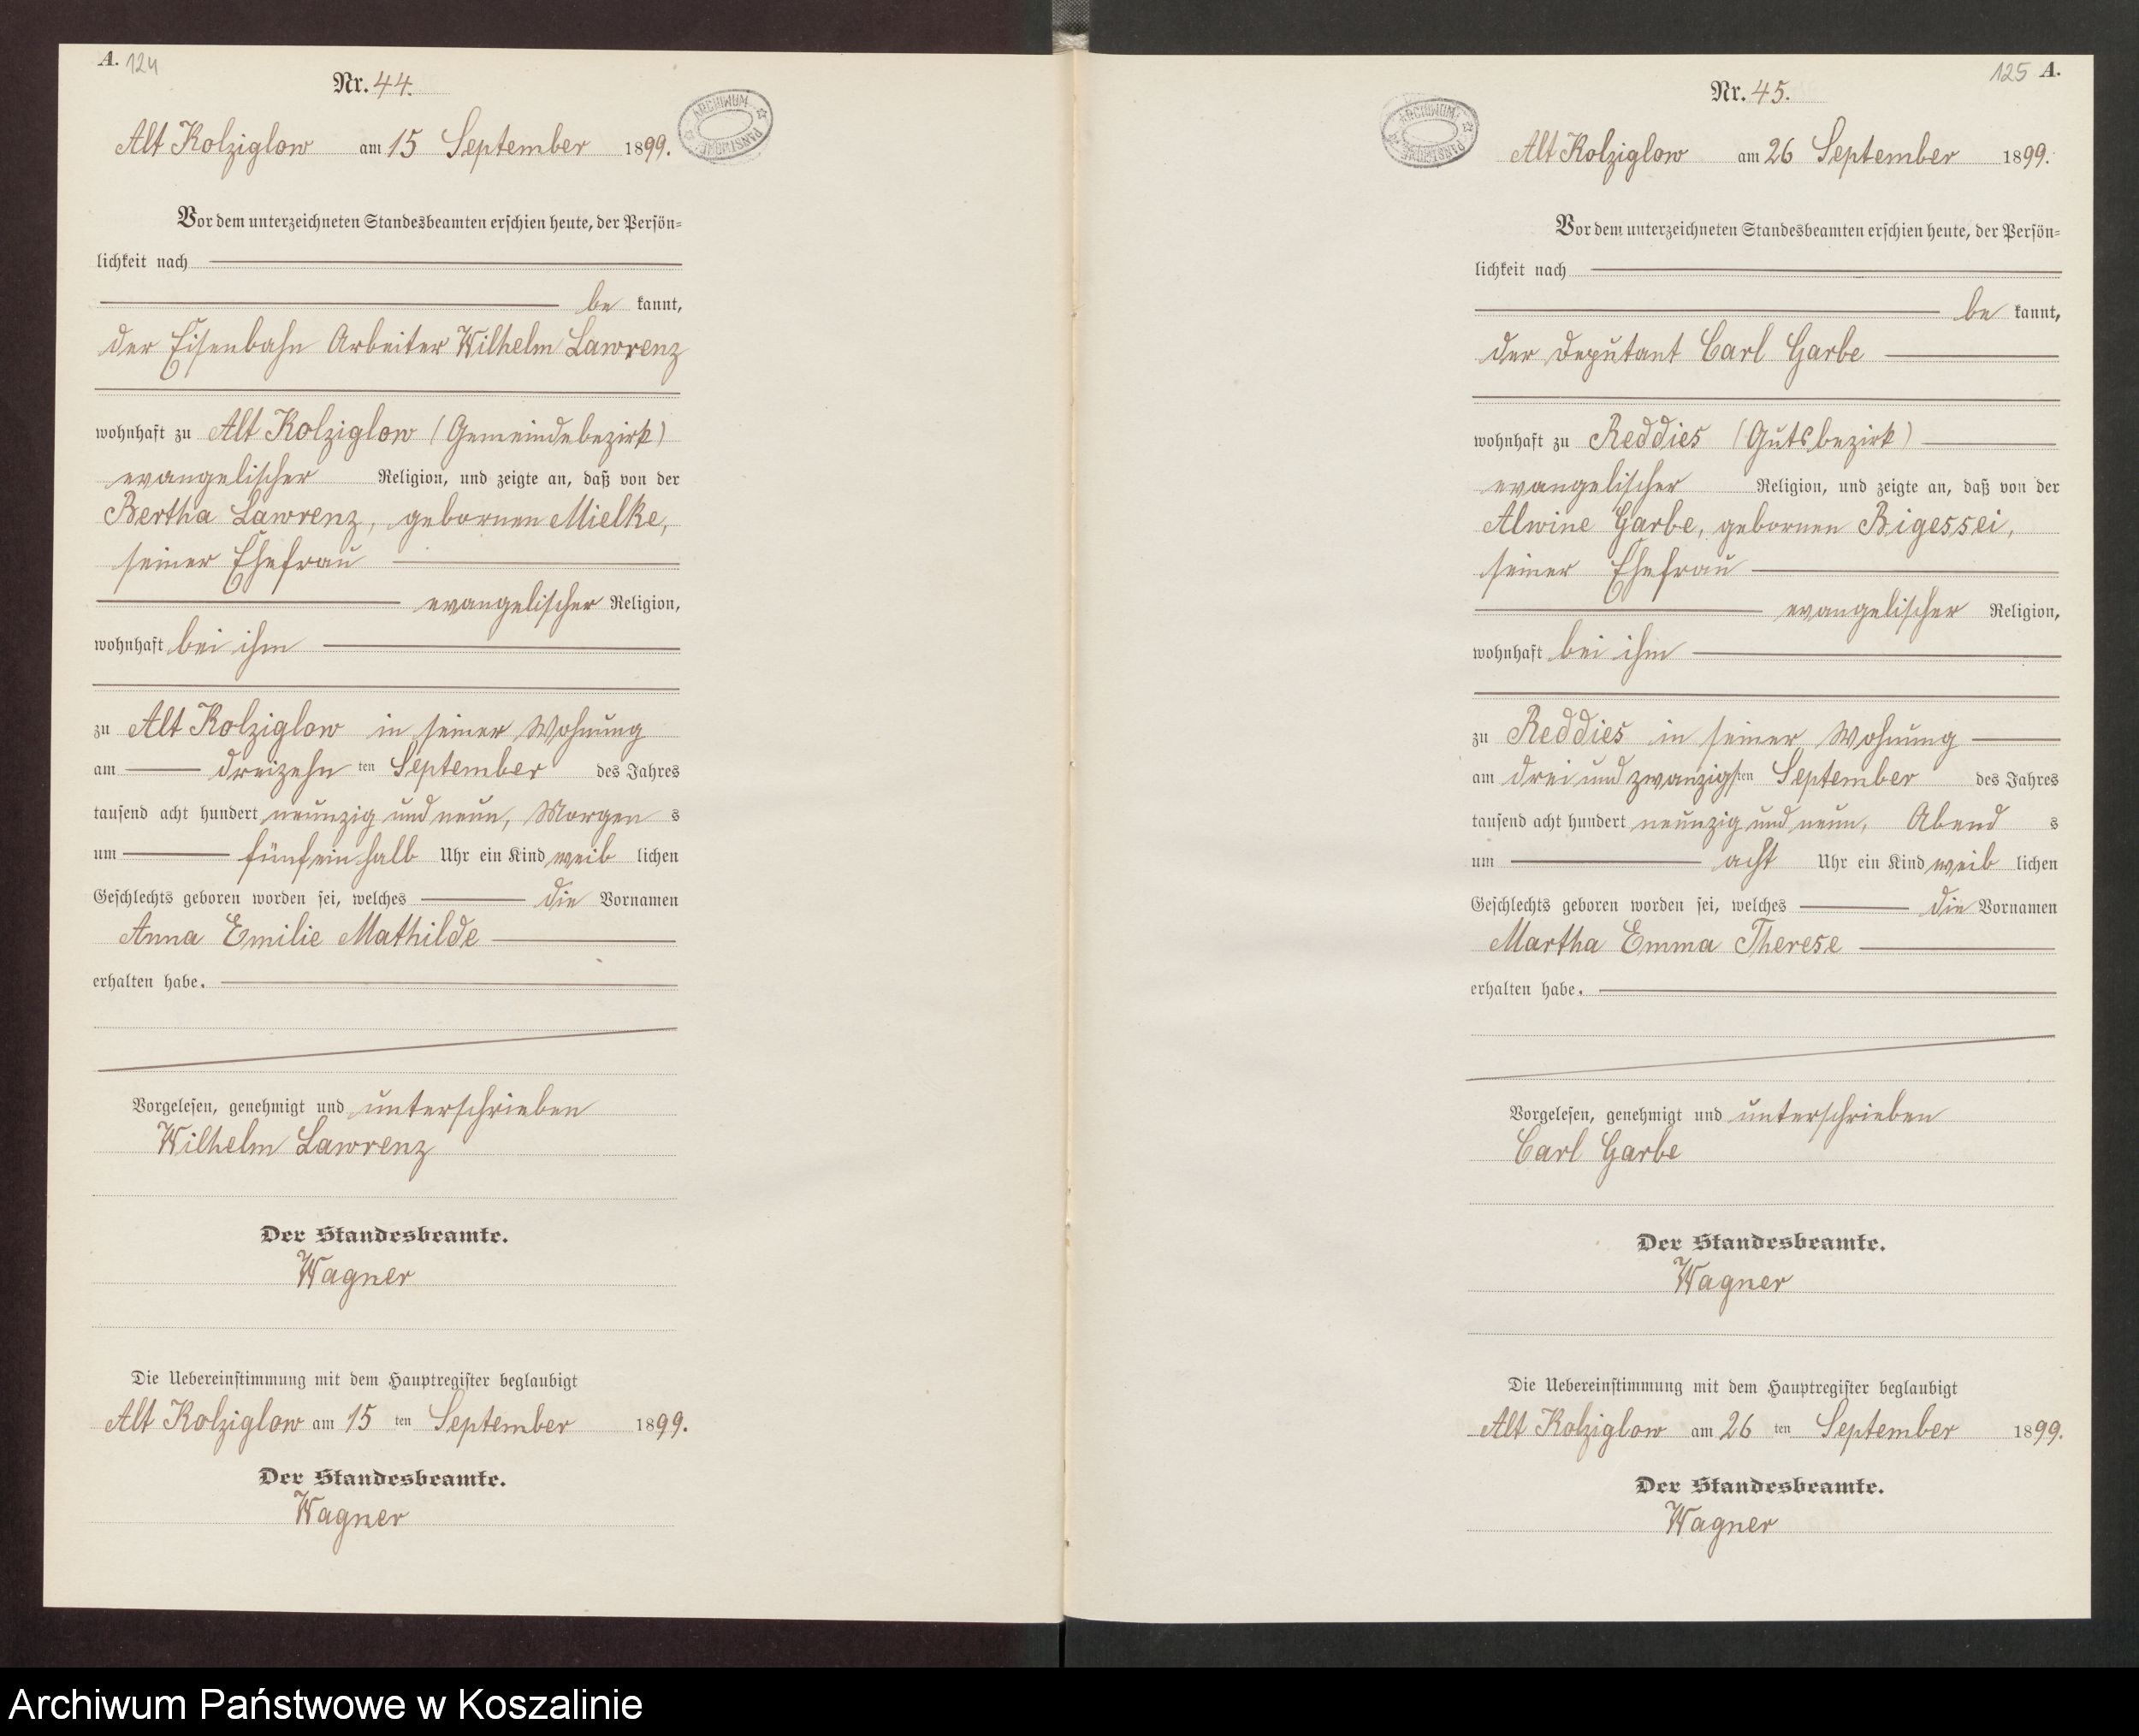 A. 124
Nr. 44.
Alt Kolziglow am 15 September 1899.
ARCHIWUM PAŃSTWOWE
Vor dem unterzeichneten Standesbeamten erschien heute, der Persön-
lichkeit nach
be kannt,
der Eisenbahn Arbeiter Wilhelm Lawrenz
wohnhaft zu Alt Kolziglow (Gemeindebezirk)
evangelischer Religion, und zeigte an, daß von der
Bertha Lawrenz, gebornen Mielke,
seiner Ehefrau
evangelischer Religion,
wohnhaft bei ihm
zu Alt Kolziglow in seiner Wohnung
am dreizehn ten September des Jahres
tausend acht hundert neunzig und neun, Morgen s
um fünfeinhalb Uhr ein Kind weib lichen
Geschlechts geboren worden sei, welches die Vornamen
Anna Emilie Mathilde
erhalten habe.
Vorgelesen, genehmigt und unterschrieben
Wilhelm Lawrenz
Der Standesbeamte.
Wagner
Die Uebereinstimmung mit dem Hauptregister beglaubigt
Alt Kolziglow am 15 ten September 1899.
Der Standesbeamte.
Wagner
125 A.
Nr. 45.
ARCHIWUM PAŃSTWOWE
Alt Kolziglow am 26 September 1899.
Vor dem unterzeichneten Standesbeamten erschien heute, der Persön-
lichkeit nach
be kannt,
der Deputant Carl Garbe
wohnhaft zu Reddies (Gutsbezirk)
evangelischer Religion, und zeigte an, daß von der
Alwine Garbe, gebornen Bigessei,
seiner Ehefrau
evangelischer Religion,
wohnhaft bei ihm
zu Reddies in seiner Wohnung
am drei und zwanzigsten September des Jahres
tausend acht hundert neunzig und neun, Abend s
um acht Uhr ein Kind weib lichen
Geschlechts geboren worden sei, welches die Vornamen
Martha Emma Therese
erhalten habe.
Vorgelesen, genehmigt und unterschrieben
Carl Garbe
Der Standesbeamte.
Wagner
Die Uebereinstimmung mit dem Hauptregister beglaubigt
Alt Kolziglow am 26 ten September 1899.
Der Standesbeamte.
Wagner
Archiwum Państwowe w Koszalinie